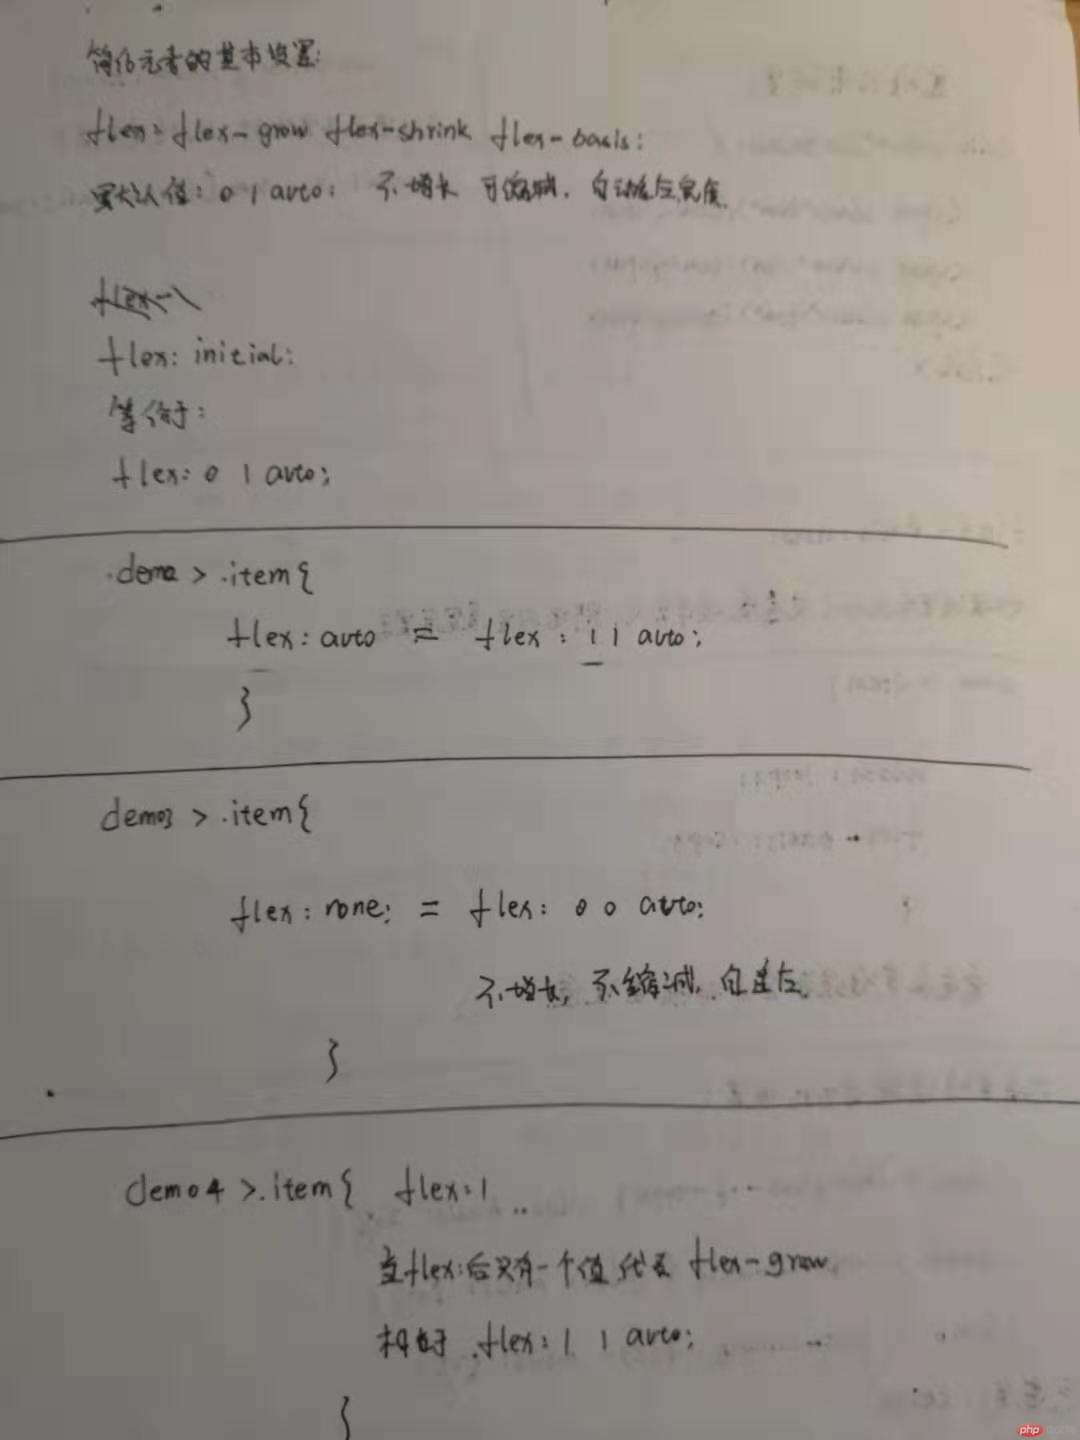 简化元素的基本设置:
flex: flex-grow flex-shrink flex-basis;
默认值: 0 1 auto; 不增长 可缩减. 自动适应宽度.
flex: initial;
等价于:
flex: 0 1 auto;
.demo > .item{
flex: auto = flex : 1 1 auto;
}
demo3 > .item{
flex: none; = flex: 0 0 auto;
不增长, 不缩减. 自适应.
}
demo4 >.item{ flex:1
当flex:后只有一个值 代表 flex-grow,
相当于 .flex: 1 1 auto;
}
php